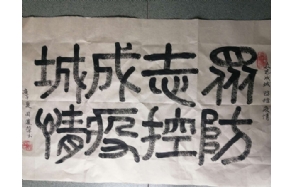 眾志成城
防控疫情